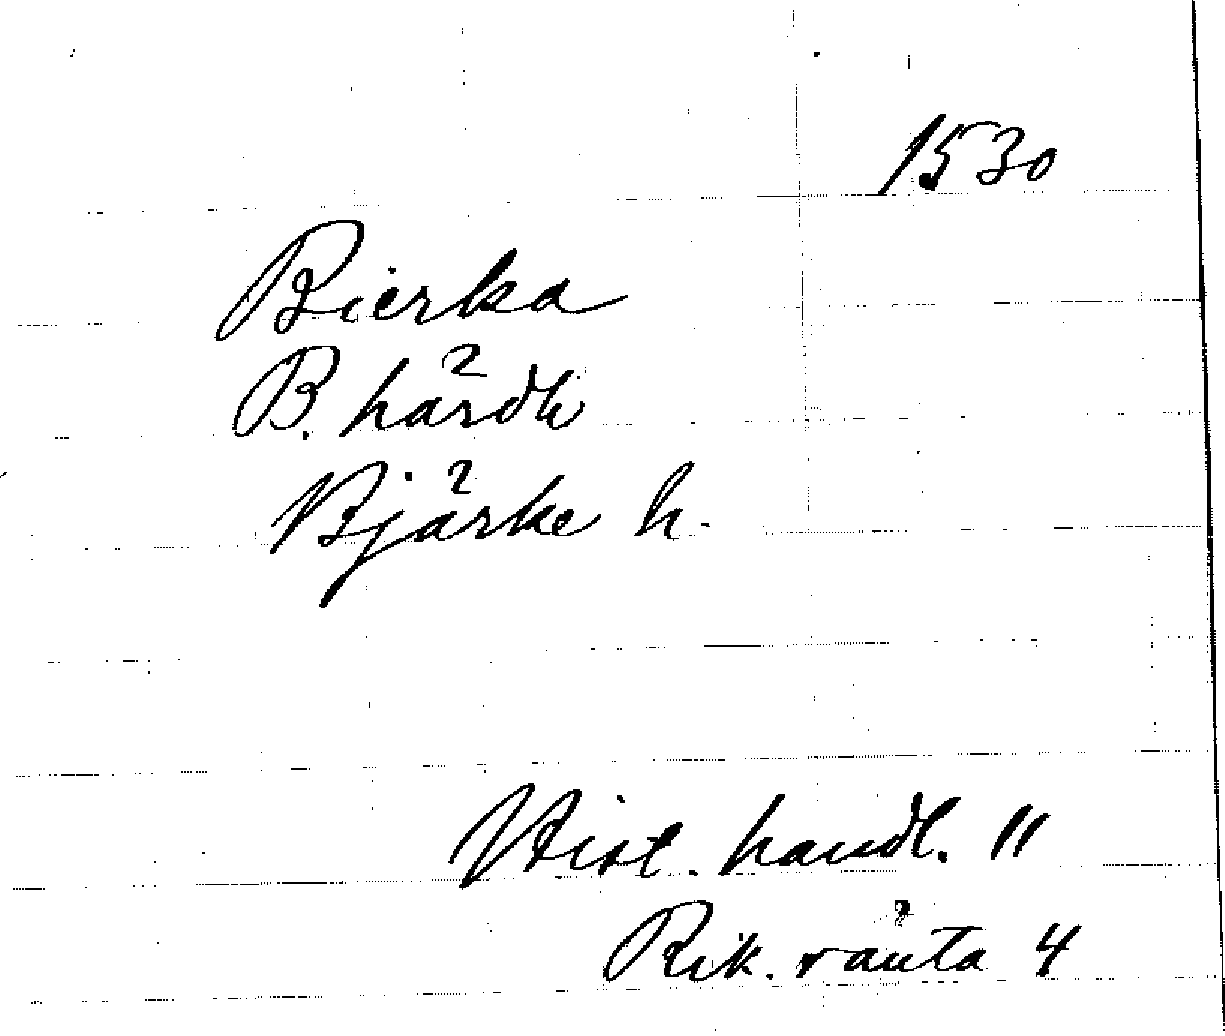 1530
Bierka
B. härdh
Bjärke h.
Hist. handl. 11
Rik. ränta 4